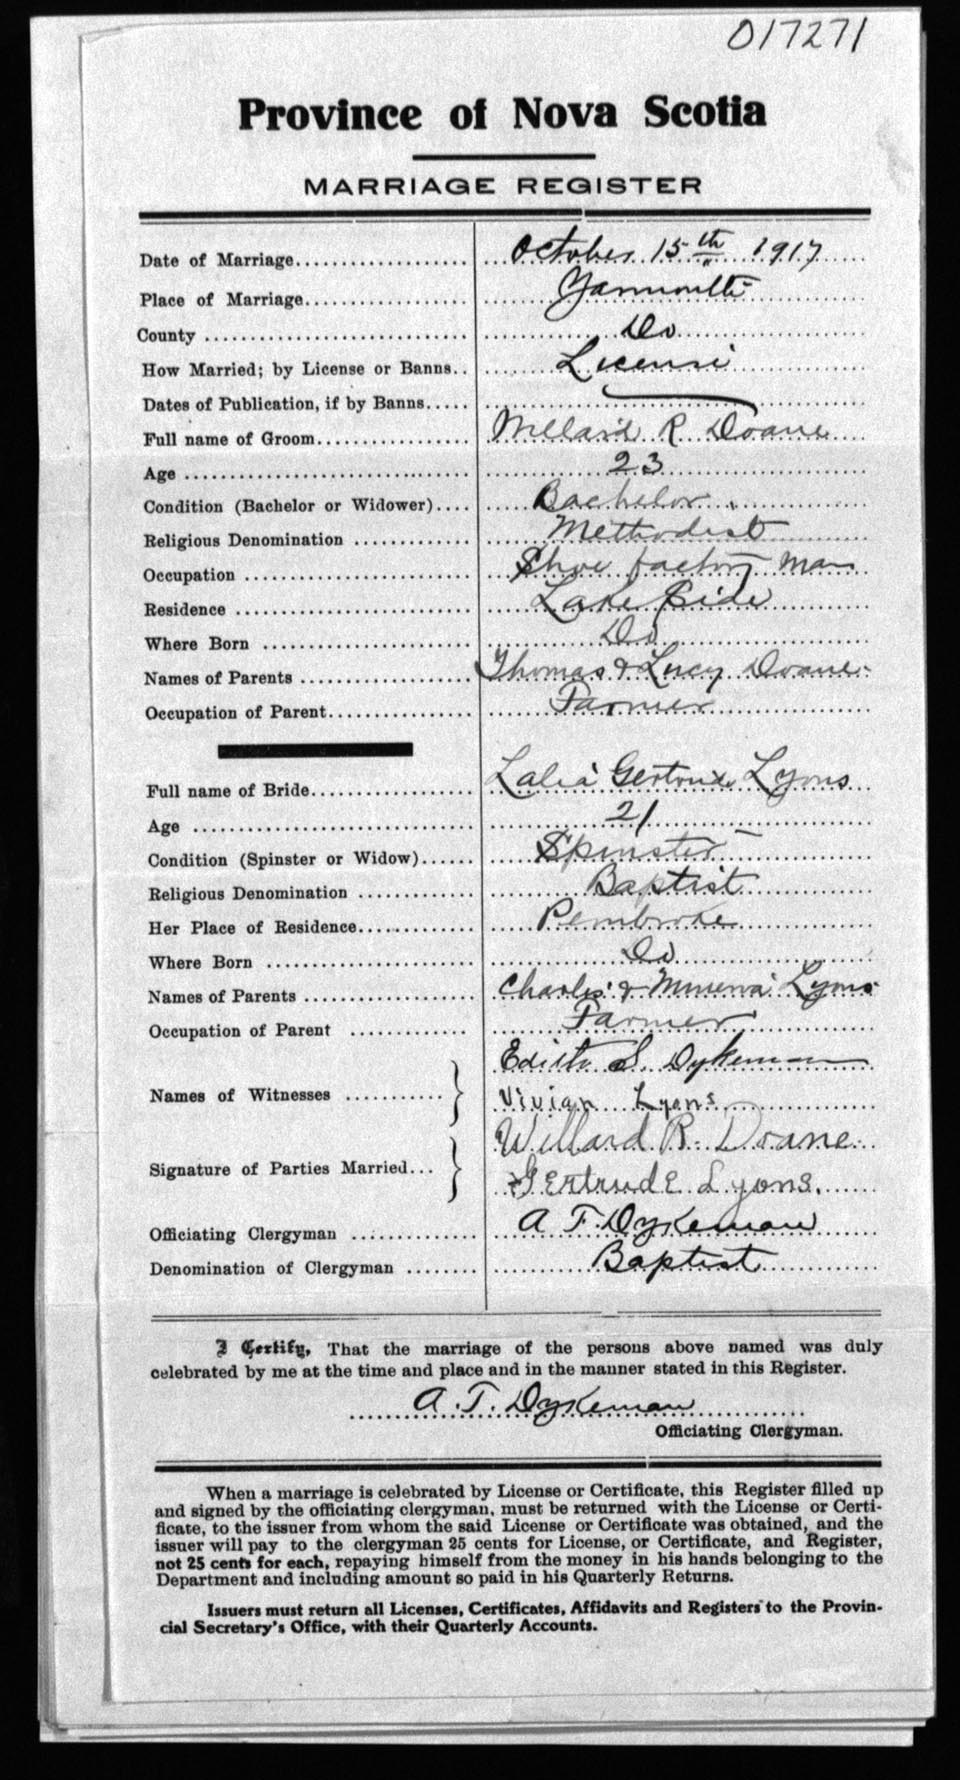 017271
Province of Nova Scotia
MARRIAGE REGISTER
Date of Marriage October 15th 1917
Place of Marriage Yarmouth
County Do
How Married; by License or Banns License
Dates of Publication, if by Banns
Full name of Groom Willard R Doane
Age 23
Condition (Bachelor or Widower) Bachelor
Religious Denomination Methodist
Occupation Shoe factory man
Residence Lake Side
Where Born Do
Names of Parents Thomas & Lucy Doane
Occupation of Parent Farmer
Full name of Bride Lalia Gertrude Lyons
Age 21
Condition (Spinster or Widow) Spinster
Religious Denomination Baptist
Her Place of Residence Pembroke
Where Born Do
Names of Parents Charles & Minerva Lyons
Occupation of Parent Farmer
Names of Witnesses Edith S. Dykeman
Vivian Lyons
Signature of Parties Married Willard R. Doane
Gertrude Lyons.
Officiating Clergyman A F. Dykeman
Denomination of Clergyman Baptist
I Certify, That the marriage of the persons above named was duly
celebrated by me at the time and place and in the manner stated in this Register.
A. F. Dykeman
Officiating Clergyman.
When a marriage is celebrated by License or Certificate, this Register filled up
and signed by the officiating clergyman, must be returned with the License or Certi-
ficate, to the issuer from whom the said License or Certificate was obtained, and the
issuer will pay to the clergyman 25 cents for License, or Certificate, and Register,
not 25 cents for each, repaying himself from the money in his hands belonging to the
Department and including amount so paid in his Quarterly Returns.
Issuers must return all Licenses, Certificates, Affidavits and Registers to the Provin-
cial Secretary's Office, with their Quarterly Accounts.